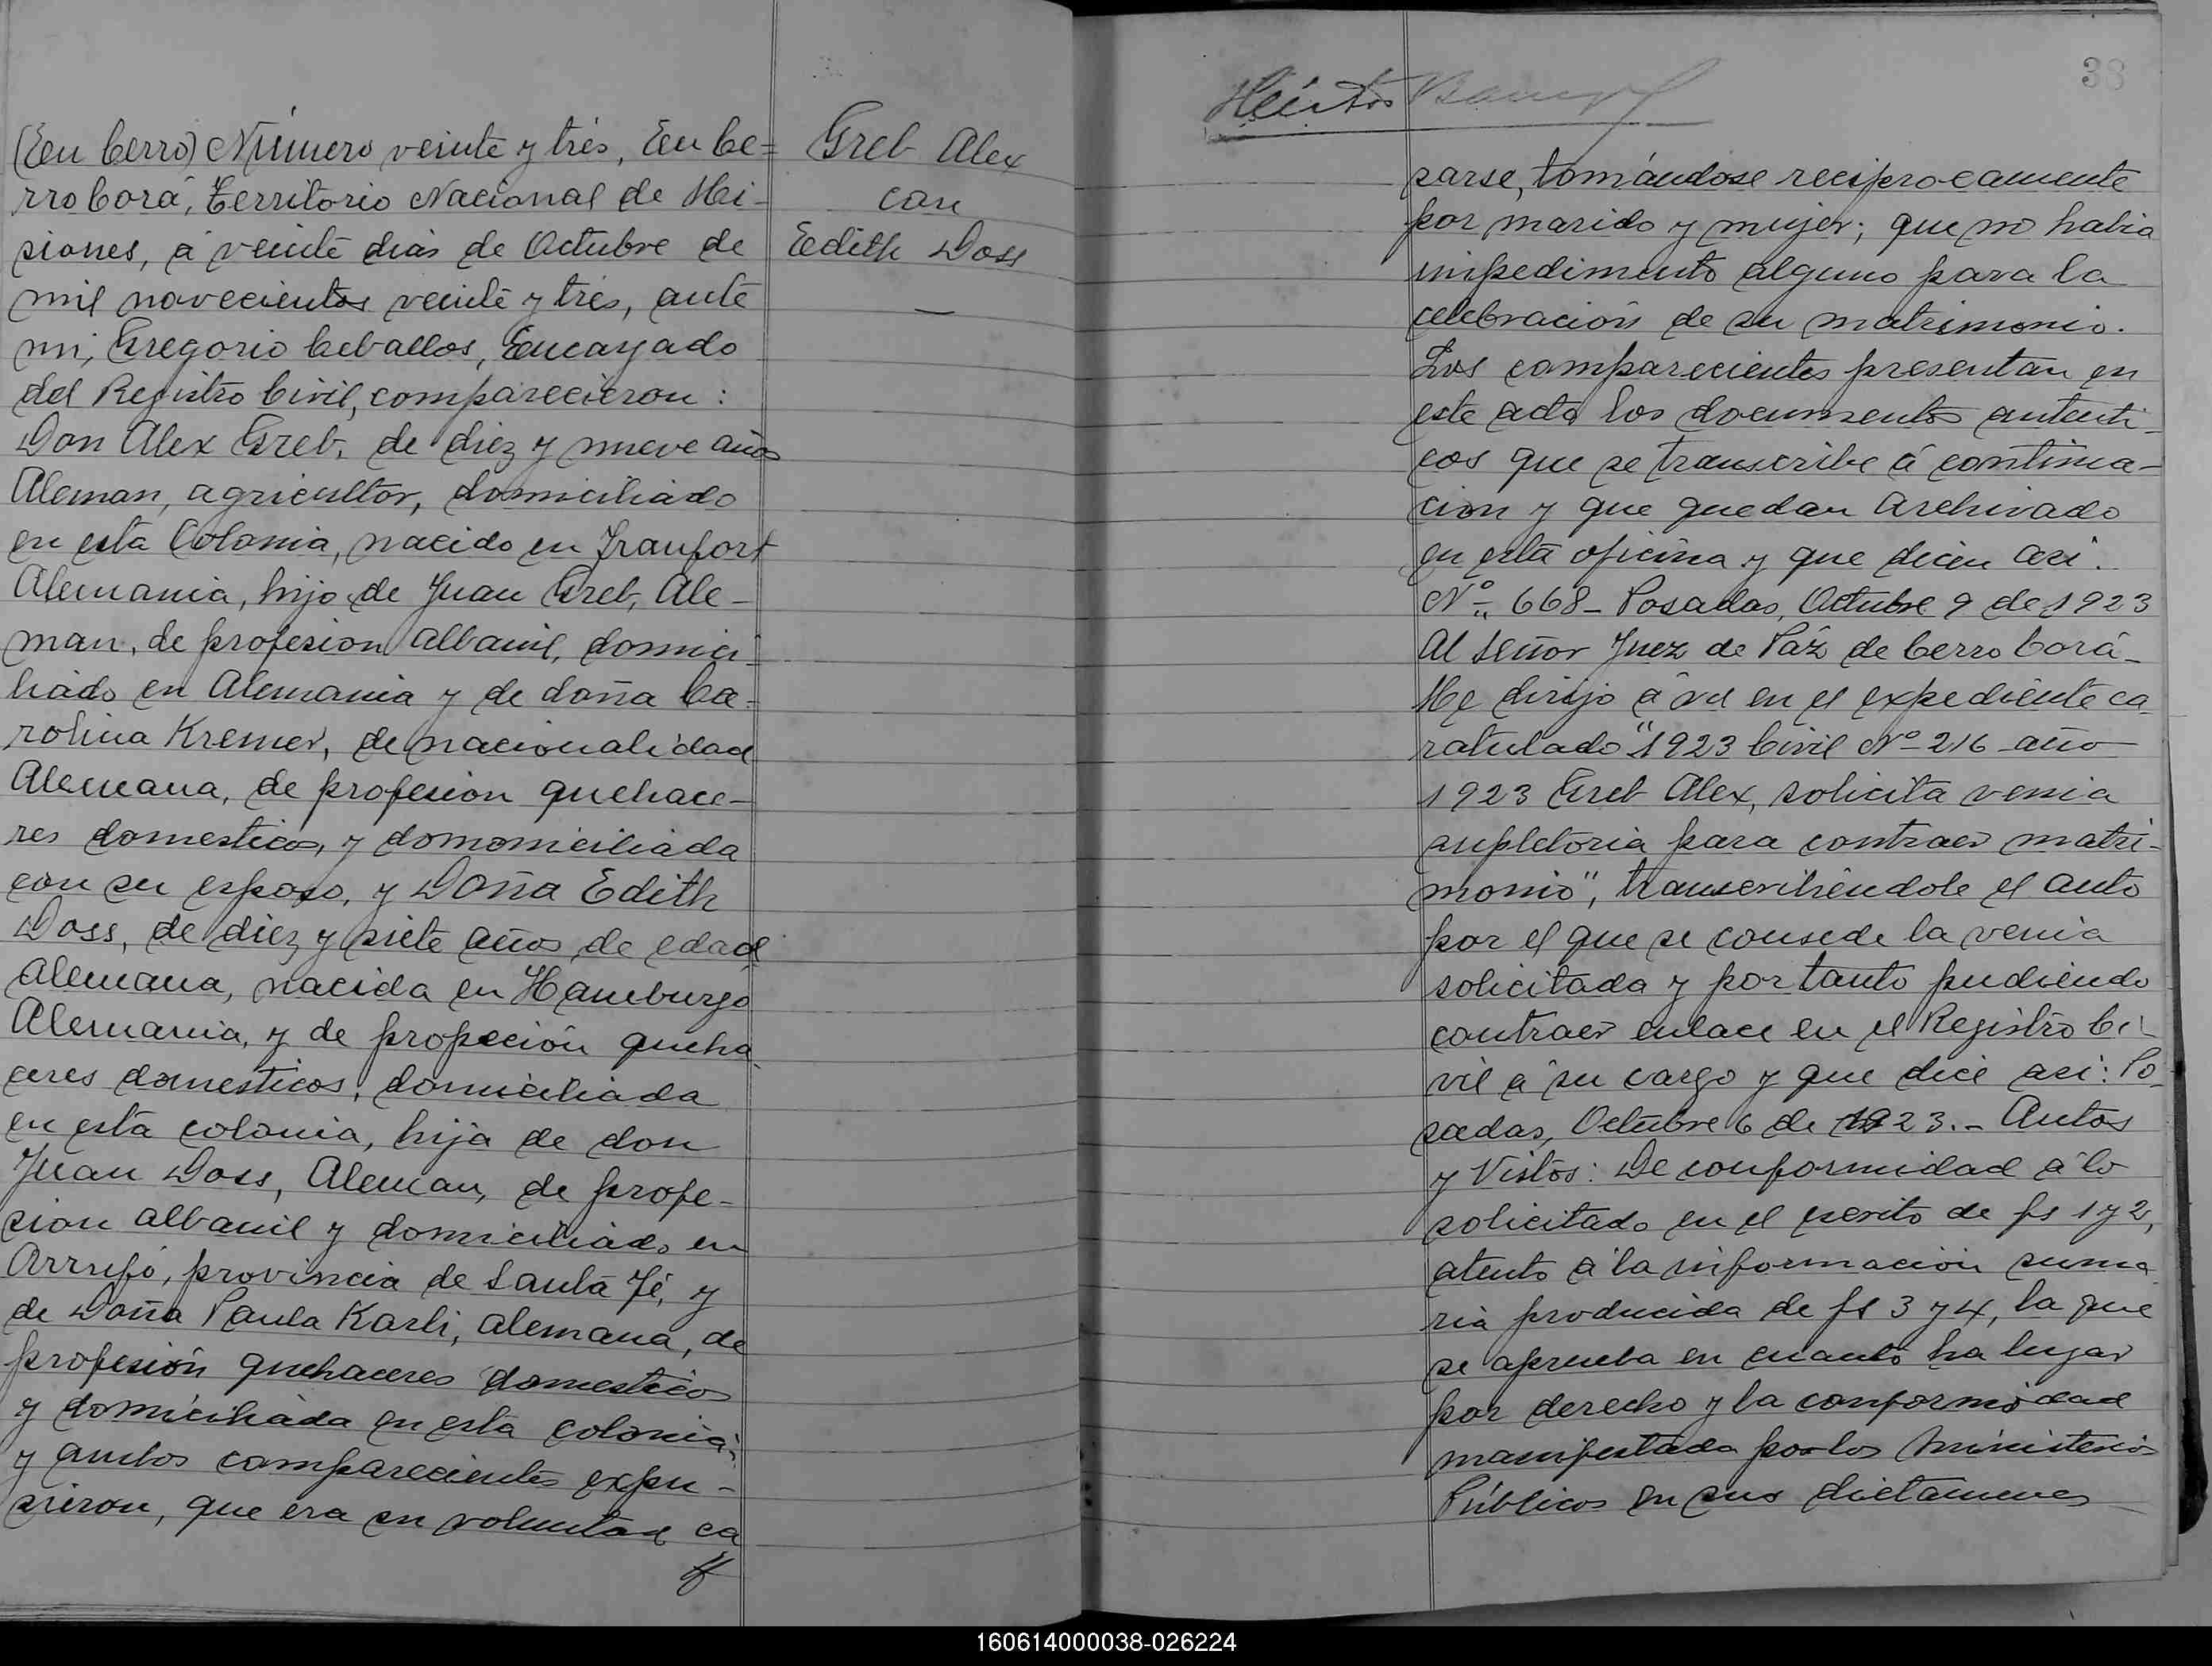 (En Cerro) Número veinte y trés, En Ce=
rro Corá, Territorio Nacional de Mi-
siones, á veinte dias de Octubre de
mil novecientos veinte y tres, ante
mi, Gregorio Ceballos, Encargado
del Registro Civil, comparecieron:
Don Alex Greb, de diez y nueve años
Aleman, agricultor, domiciliado
en esta Colonia, nacido en Franfort
Alemania, hijo de Juan Greb, Ale-
man, de profesion albañil, domici-
liado en Alemania y de doña Ca=
rolina Kremer, de nacionalidad
Alemana, de profesion quehace-
res domesticos, y domomiciliada
con su esposo, y Doña Edith
Doss, de diez y siete años de edad
Alemana, nacida en Hamburgo
Alemania, y de profeción queha
ceres domesticos, domiciliada
en esta colonia, hija de don
Juan Doss, Aleman, de profe-
sion albanil y domiciliado en
Arrufó, provincia de Santa Fé, y
de Doña Paula Karli, alemana, de
profesión quehaceres domesticos
y domiciliada en esta colonia;
y ambos comparecientes expu-
sieron, que era su voluntad ca
Greb Alex
con
Edith Doss
—
38
Héctor
sarse, tomándose reciprocamente
por marido y mujer; que no habia
impedimento alguno para la
celebración de su matrimonio.
Los comparecientes presentan en
este acto los documentos autenti-
cos que se transcribe á continua-
cion y que quedan archivado
en esta oficina y que dicen asi:
Nº 668- Posadas, Octubre 9 de 1923
Al señor Juez de Páz de Cerro Corá-
Me dirijo á vd en el expediente ca
ratulado "1923 Civil Nº 216 año
1923 Greb Alex, solicita venia
supletoria para contraer matri-
monio", transcribiéndole el auto
por el que se consede la venia
solicitada y por tanto pudiendo
contraer enlace en el Registro Ci-
vil á su cargo y que dice asi: Po-
sadas, Octubre 6 de 1923.- Autos
y Vistos: De conformidad á lo
solicitado en el escrito de fs 1 y 2,
atento á la informacion suma
ria producida de fs 3 y 4, la que
se aprueba en cuanto ha lugar
por derecho y la conformidad
manifestada por los Ministerios
Públicos en sus dictamenes
160614000038-026224